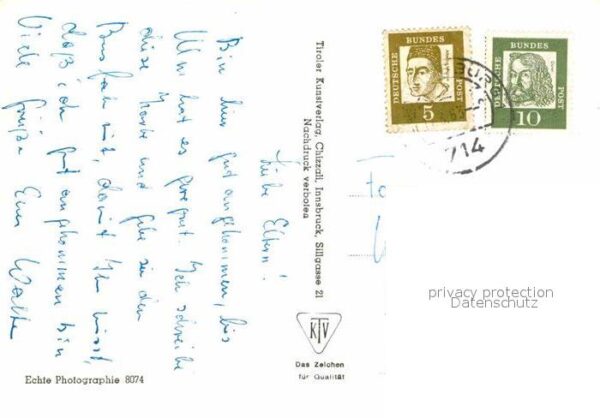 Liebe Eltern!
Bin hier gut angekommen, bis
Ulm hat es geregnet. Ich schreibe
diese Karte und gebe sie dem
Bus mit, damit Ihr wisst,
daß ich gut angekommen bin
Viele Grüße Euer Walter
Tiroler Kunstverlag, Chizzali, Innsbruck, Sillgasse 21
Nachdruck verboten
KTV
Das Zeichen
für Qualität
Echte Photographie 8074
DEUTSCHE BUNDES POST
5
DEUTSCHE BUNDES POST
10
714
privacy protection
Datenschutz